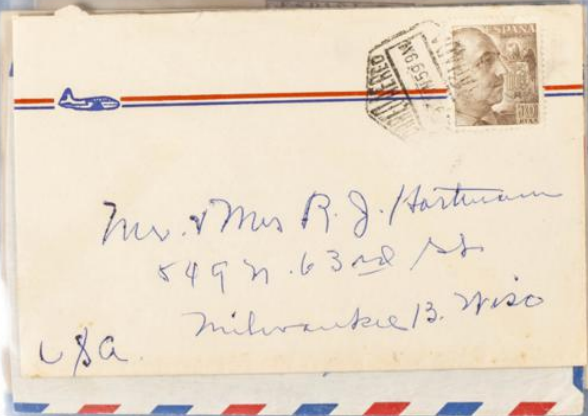 ESPAÑA
CORREO AEREO
Mr. & Mrs R. J. Hartman
849 N. 63rd St
Milwaukee 13. Wisc
USA.